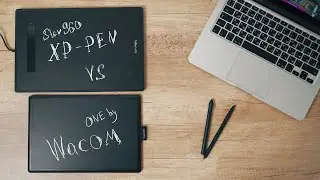 Star 960
XP-PEN
VS
ONE by
Wacom